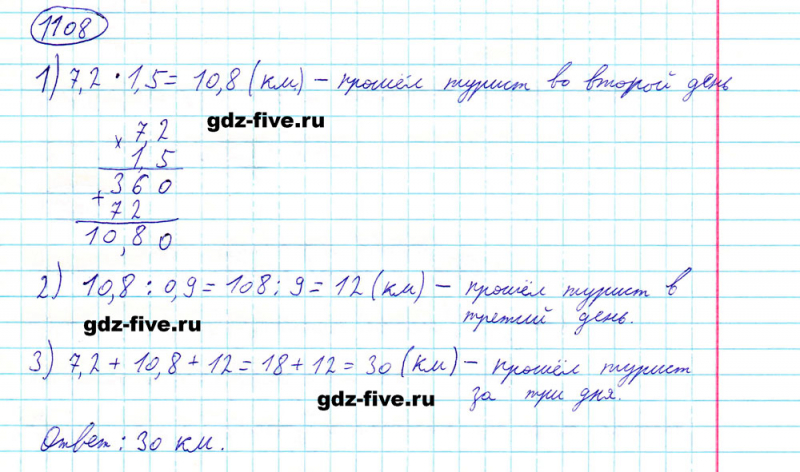 1108
1) 7,2 · 1,5 = 10,8 (км) – прошёл турист во второй день
gdz-five.ru
× 7,2
1,5
+ 360
72
10,80
2) 10,8 : 0,9 = 108 : 9 = 12 (км) – прошёл турист в
третий день.
gdz-five.ru
3) 7,2 + 10,8 + 12 = 18 + 12 = 30 (км) – прошёл турист
за три дня.
gdz-five.ru
Ответ: 30 км.